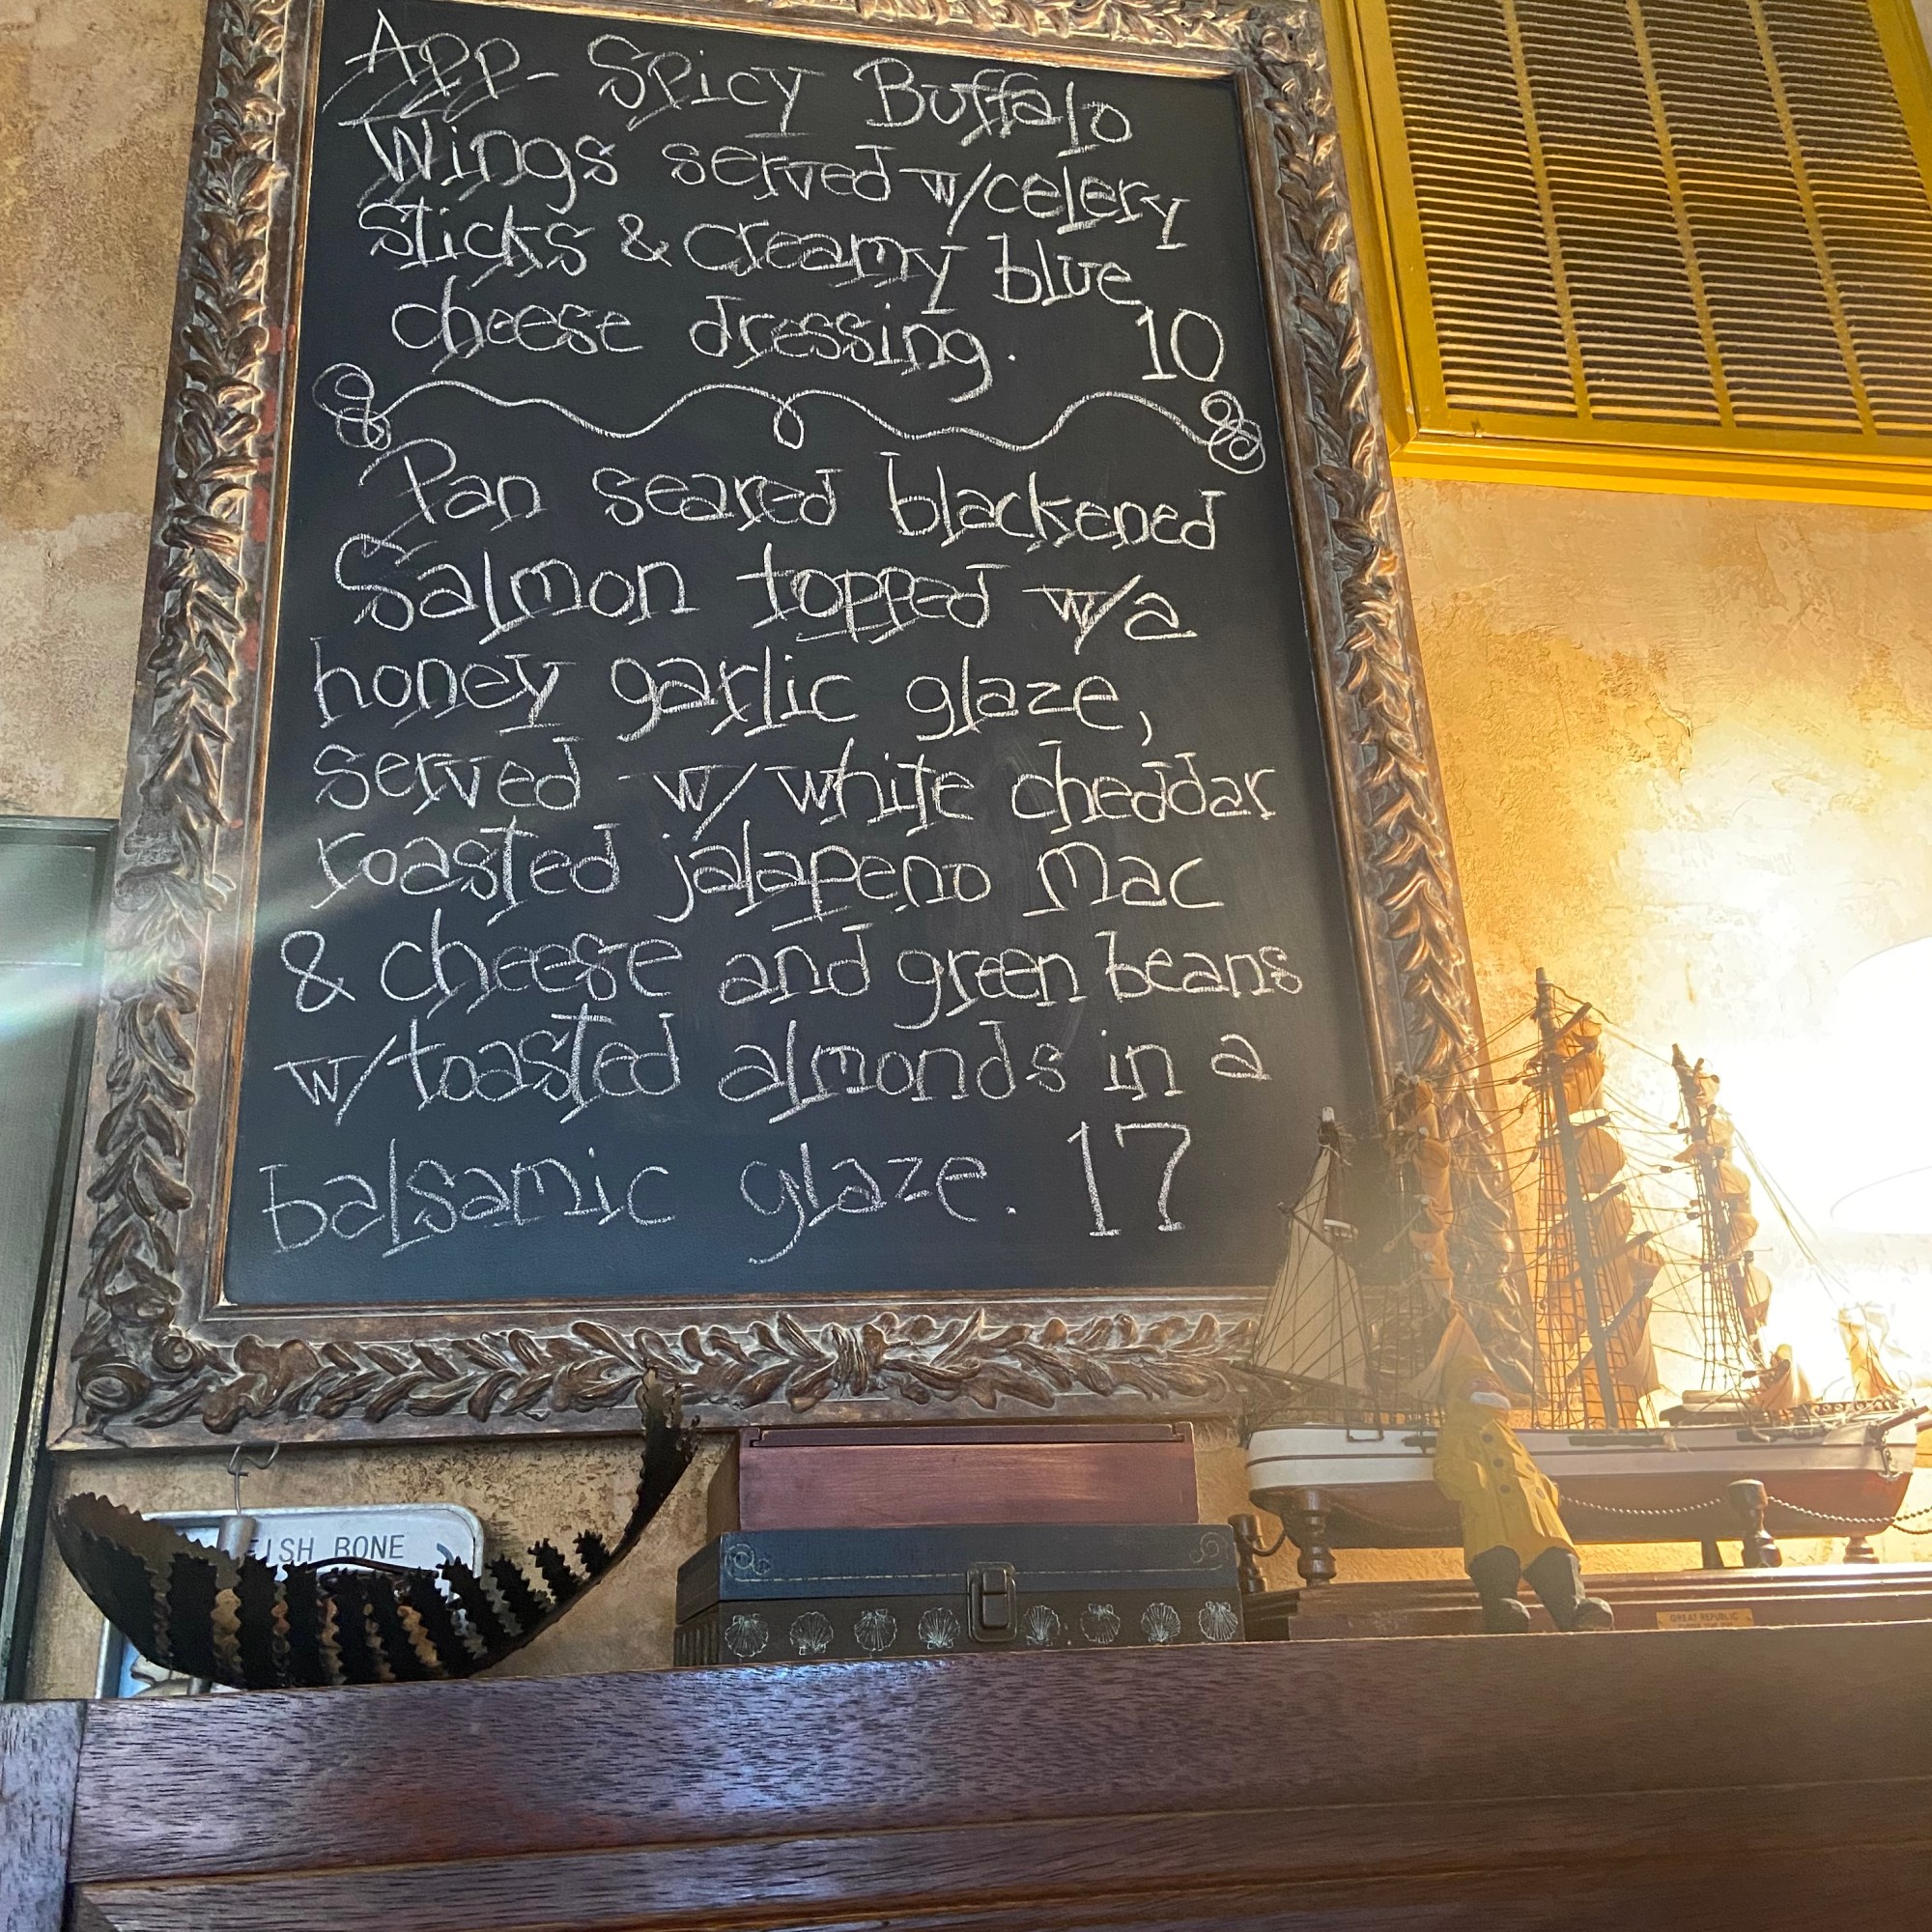 App- Spicy Buffalo
Wings served w/celery
sticks & creamy blue
cheese dressing. 10
Pan seared blackened
Salmon topped w/a
honey garlic glaze,
served w/ white cheddar
roasted jalapeno Mac
& cheese and green beans
w/toasted almonds in a
balsamic glaze. 17
FISH BONE
GREAT REPUBLIC